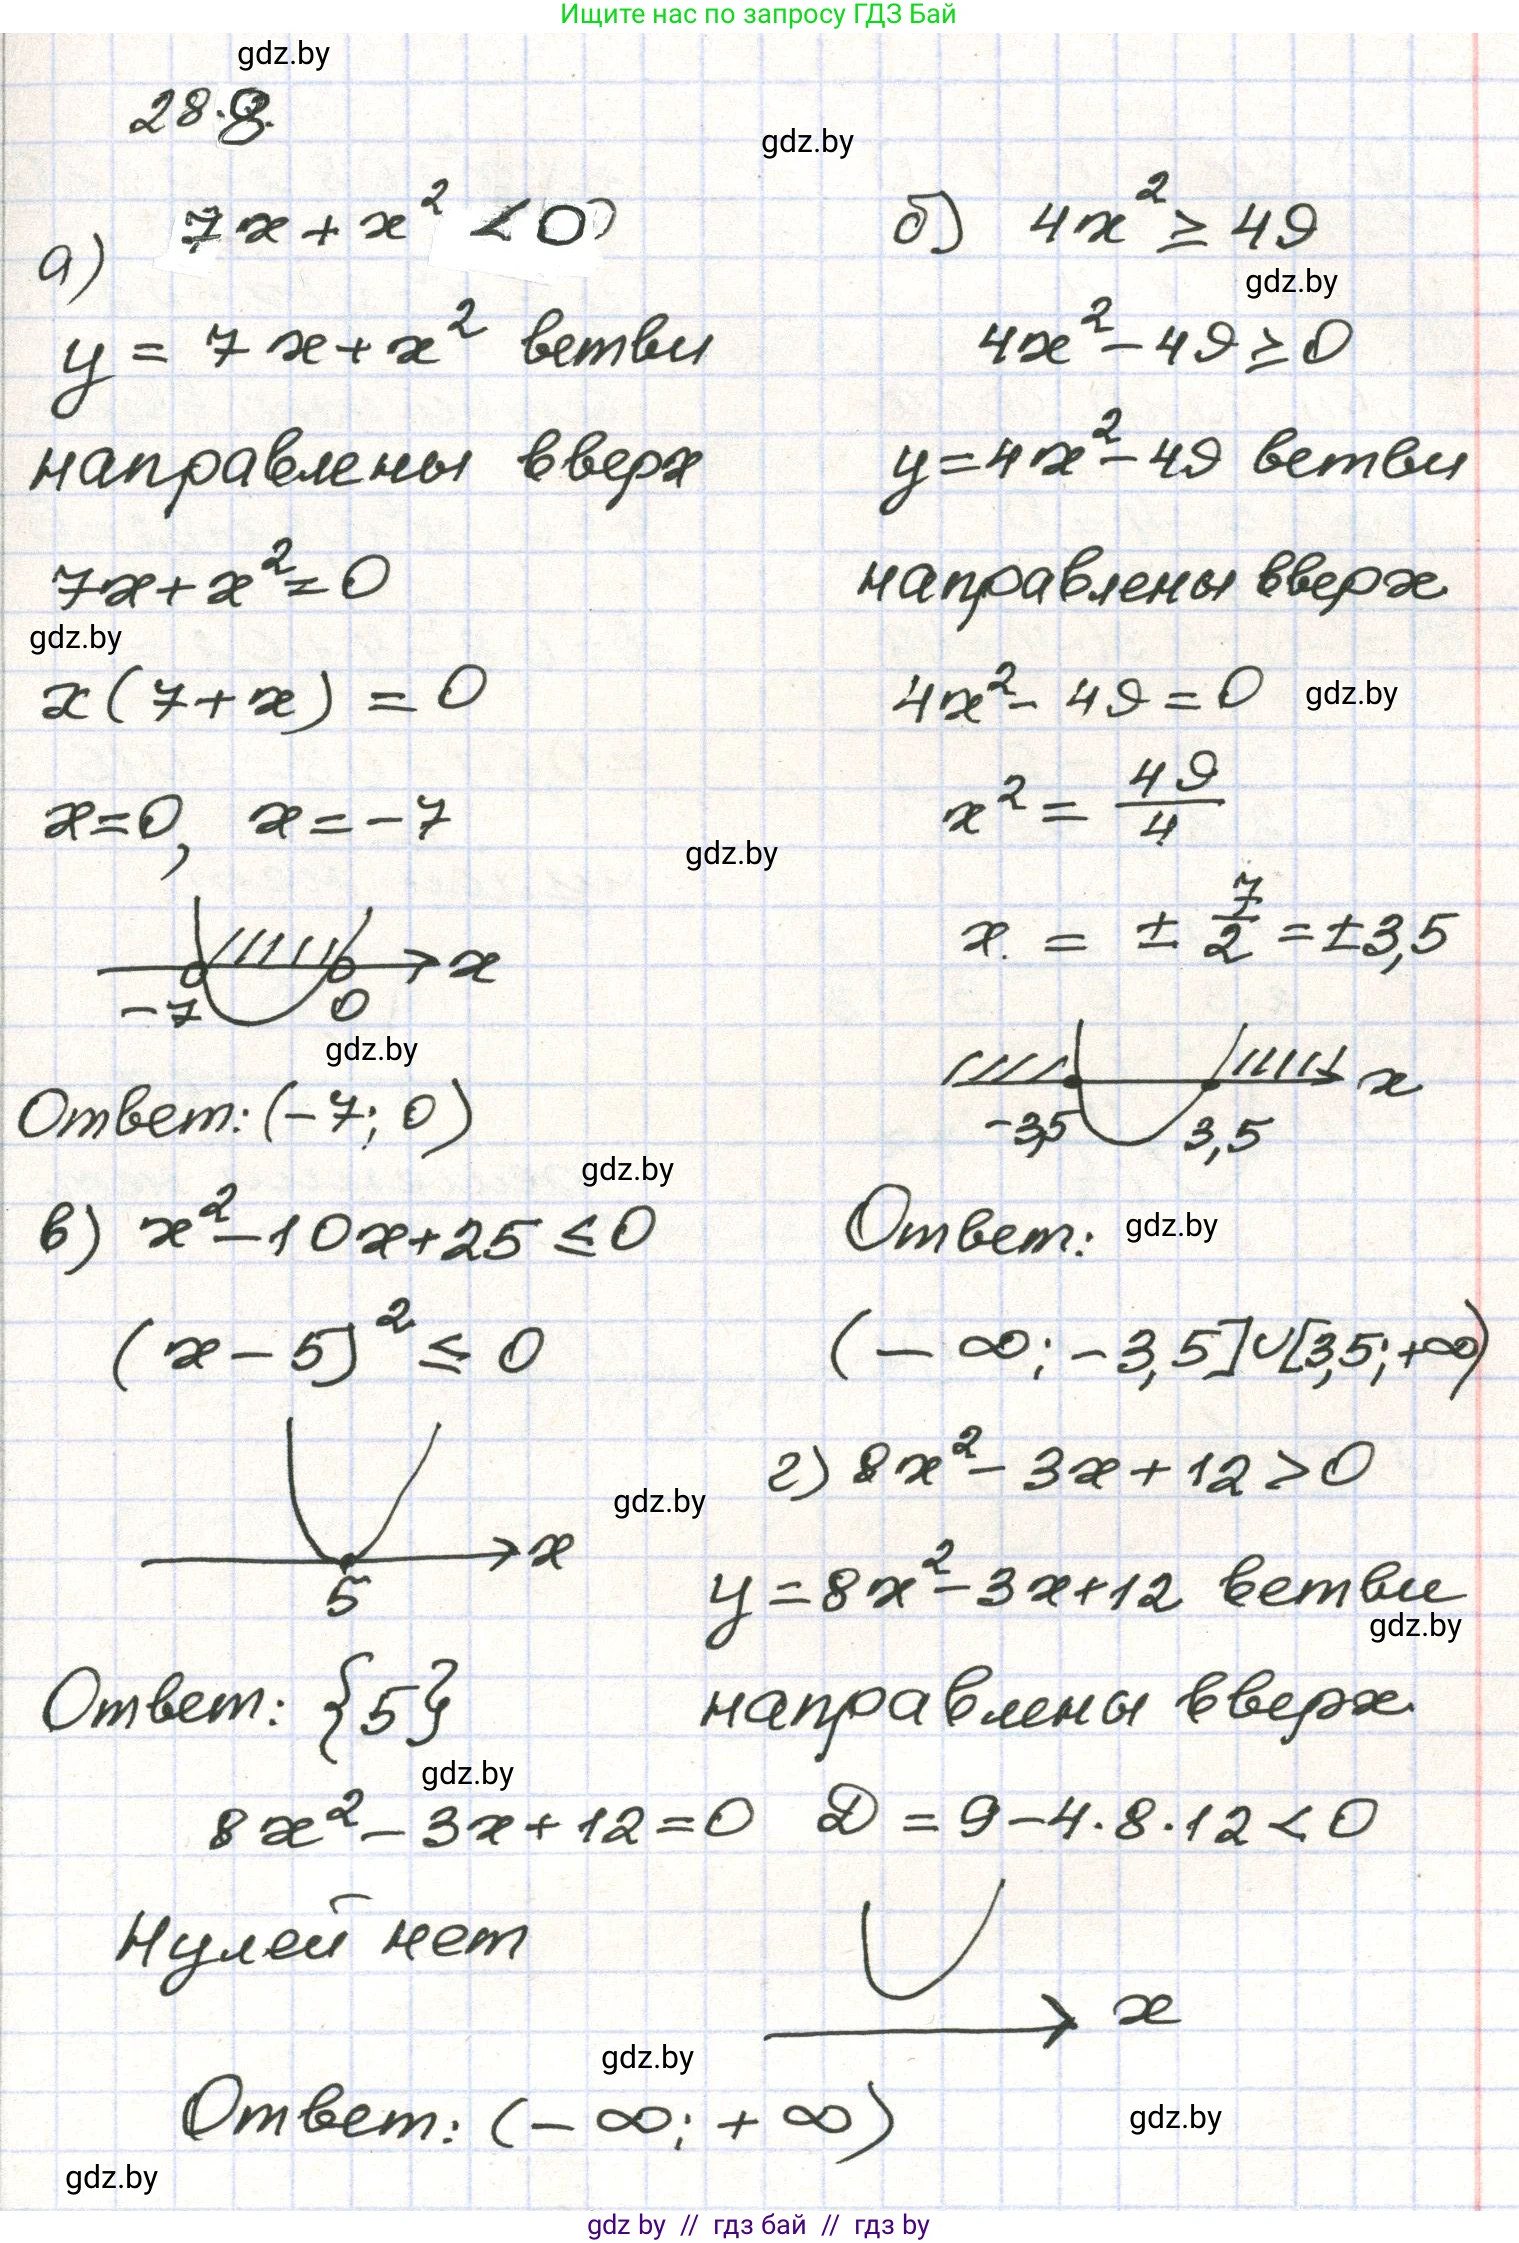 Ищите нас по запросу ГДЗ Бай
gdz.by
28.8.
gdz.by
а) 7x + x² < 0
y = 7x + x² ветви
направлены вверх
7x + x² = 0
gdz.by
x(7 + x) = 0
x = 0, x = -7
gdz.by
x
-7 0
gdz.by
Ответ: (-7; 0)
gdz.by
б) 4x² ≥ 49
gdz.by
4x² - 49 ≥ 0
y = 4x² - 49 ветви
направлены вверх
4x² - 49 = 0 gdz.by
x² = 49/4
x = ± 7/2 = ±3,5
x
-3,5 3,5
Ответ: gdz.by
(-∞; -3,5]∪[3,5; +∞)
в) x² - 10x + 25 ≤ 0
(x - 5)² ≤ 0
gdz.by
x
5
Ответ: {5}
gdz.by
г) 8x² - 3x + 12 > 0
y = 8x² - 3x + 12 ветви
gdz.by
направлены вверх
8x² - 3x + 12 = 0 D = 9 - 4·8·12 < 0
Нулей нет
x
gdz.by
Ответ: (-∞; +∞)
gdz.by
gdz.by
gdz by // гдз бай // гдз by